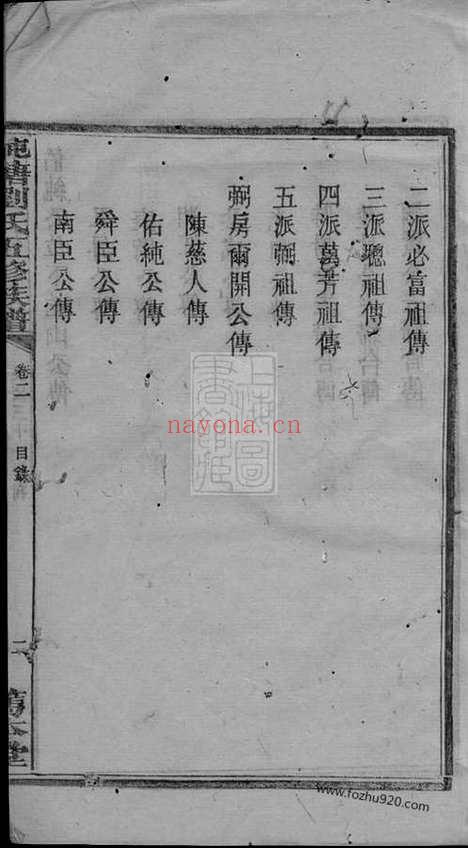 二派必富祖傳
三派聰祖傳
四派萬芳祖傳
五派弼祖傳
弼房爾開公傳
陳慈人傳
佑純公傳
舜臣公傳
南臣公傳
劉氏五修族譜
卷二
目錄
二
上海圖書館藏
nayona.cn
www.fozhu920.com